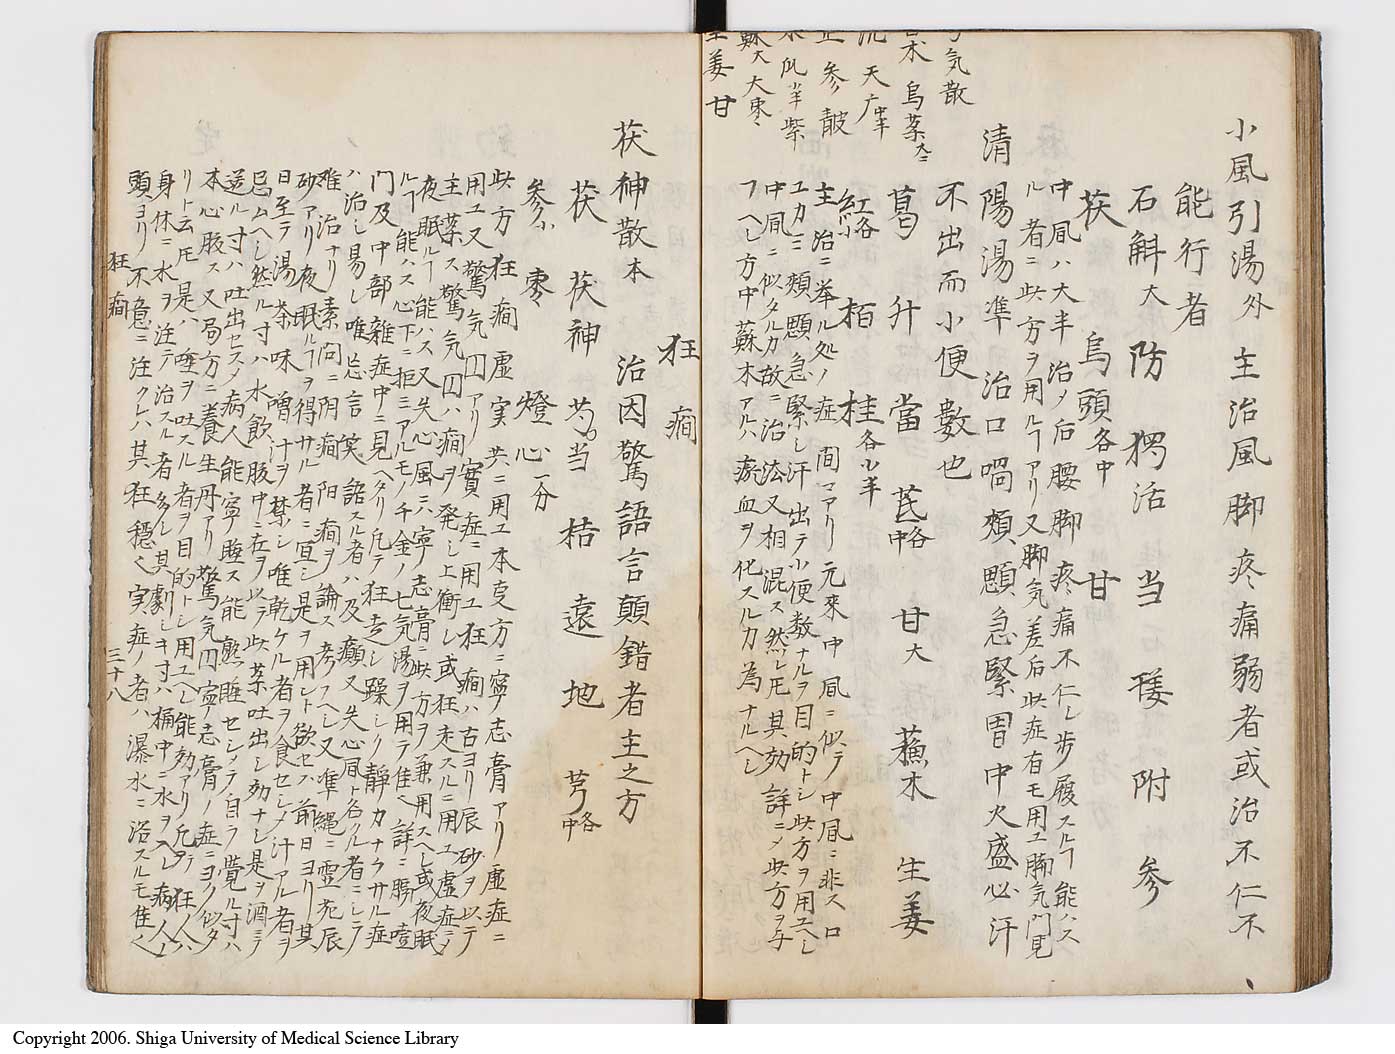 小風引湯外 主治風脚疼痛弱者或治不仁不
能行者
石斛大 防 独活 当 䅖 附 参
茯 烏頭各中 甘
中風ハ大半治メ后腰脚疼痛不仁し歩履スルヿ能ハス
ル者ニ此方ヲ用ルヿアリ又脚気差后此症有モ用ユ脚気門見
清陽湯準 治口喎頰顋急緊胃中火盛必汗
不出而小便數也
葛 升 當 芪中各 甘大 蘓木 生姜
紅各小 栢 桂各半
主治ニ挙ル処ノ症間マアリ元來中風ニ似テ中風ニ非ス口
ユカミ頰顋急緊し汗出テ小便数ナルヲ目的トシ此方ヲ用ユヘし
中風ニ似タルカ故ニ治法又相混ス然レ𪜈其効詳ニメ此方ヲ与
フヘし方中蘇木アルハ瘀血ヲ化スル力為ナルヘし
気散
烏薬
天
参 皷
紫
蘇大 大棗
姜 甘
狂癇
茯神散本 治因驚語言顛錯者主之方
茯 茯神 芍 当 桔 遠 地 芎中各
参小 棗 燈心一分
此方狂癇虚実共ニ用ユ本支方ニ寧志膏アリ虚症ニ
用ユ又驚気囚アリ實症ニ用ユ狂癇ハ古ヨリ辰砂ヲ以テ
主薬ス驚気囚ハ癇ヲ発し上衝し或狂走スルニ用ユ虚症ニメ
夜眠ルヿ能ハス又失心風ニハ寧志膏ニ此方ヲ兼用スヘし或夜眠
ルヿ能ハス心下ニ拒ミアルモノ千金ノ七気湯ヲ用テ佳く詳ニ膈噎
門及中部雜症中ニ見ヘタリ凢テ狂走し躁シク靜カナラサル症
ハ治し易し唯忘言笑語スル者ハ及癲又失心風ト名クル者ニシテ
难治ナリ素問ニ阴癇阳癇ヲ論ス考フヘし又準縄ニ霊苑辰
砂アリ夜眠ルヿヲ得サル者ニ宜シ是ヲ用レト欲セハ前日ヨリ其
日至テ湯茶味噌汁ヲ禁シ唯乾ケル者ヲ食セシメ汁アル者ヲ
忌ムヘし然ル寸ハ水飲腹中ニ在ヲ以テ此薬吐出シ効ナし是ヲ酒ニテ
送ル寸ハ吐出セスメ病人能寧睡ス能熟睡セシメテ自ラ覚ル寸ハ
本心腹ス又局方ニ養生丹アリ驚気囚寧志膏ノ症ニヨク似タ
リト云𪜈是ハ唾ヲ吐スル者ヲ目的トし用ユヘし能効アリ凢テ狂人ハ
身体ニ水ヲ注テ治スル者多し其劇しキ寸ハ桶中ニ水ヲ入レ病人ノ
頭ヨリ不急ニ注クレハ其狂穏く実症ノ者ハ瀑水ニ浴スルモ佳く
狂癇 三十八
Copyright 2006. Shiga University of Medical Science Library